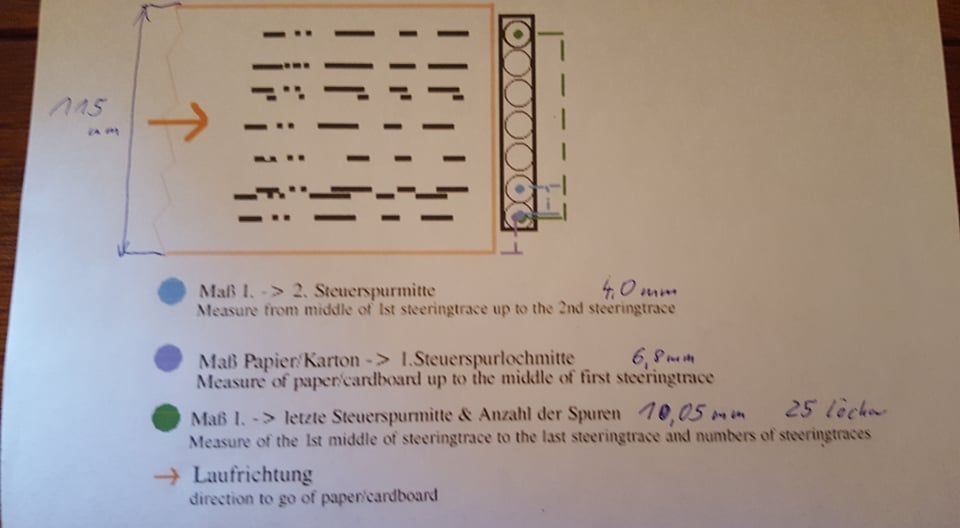 115
mm
Maß 1. -> 2. Steuerspurmitte 4,0 mm
Measure from middle of 1st steeringtrace up to the 2nd steeringtrace
Maß Papier/Karton -> 1.Steuerspurlochmitte 6,8 mm
Measure of paper/cardboard up to the middle of first steeringtrace
Maß 1. -> letzte Steuerspurmitte & Anzahl der Spuren 10,05 mm 25 Löcher
Measure of the 1st middle of steeringtrace to the last steeringtrace and numbers of steeringtraces
Laufrichtung
direction to go of paper/cardboard